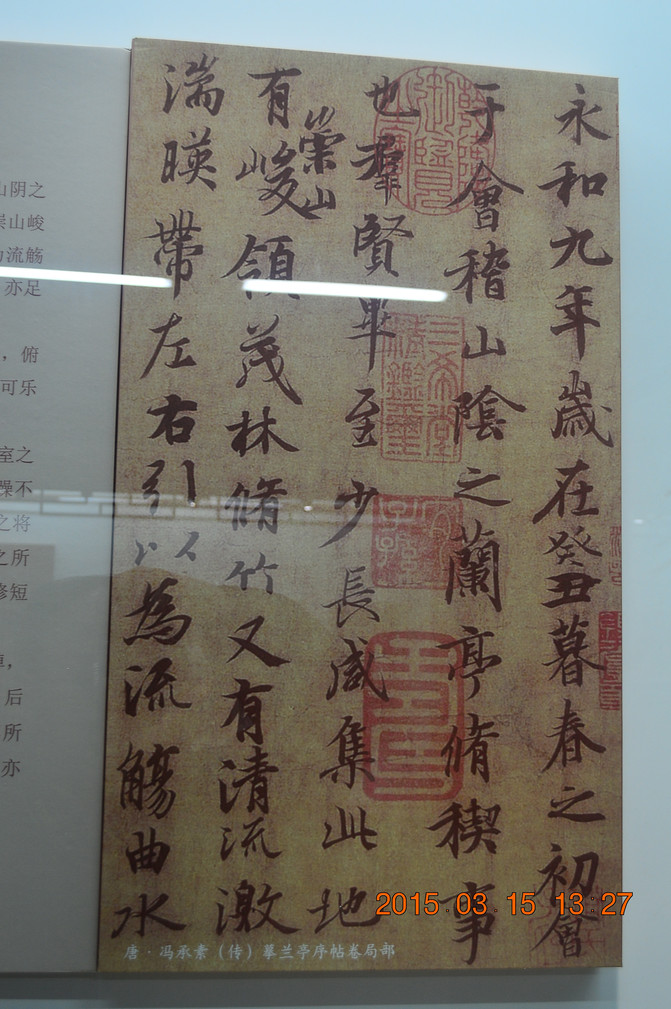 永和九年歲在癸丑暮春之初會
于會稽山陰之蘭亭脩稧事
也羣賢畢至少長咸集此地
有崇山峻領茂林脩竹又有清流激
湍暎帶左右引以為流觴曲水
三希堂精鑑璽
宜子孫
唐·冯承素（传）摹兰亭序帖卷局部
山阴之
崇山峻
为流觞
亦足
，俯
可乐
室之
躁不
之将
之所
修短
后
所
亦
2015.03.15 13:27